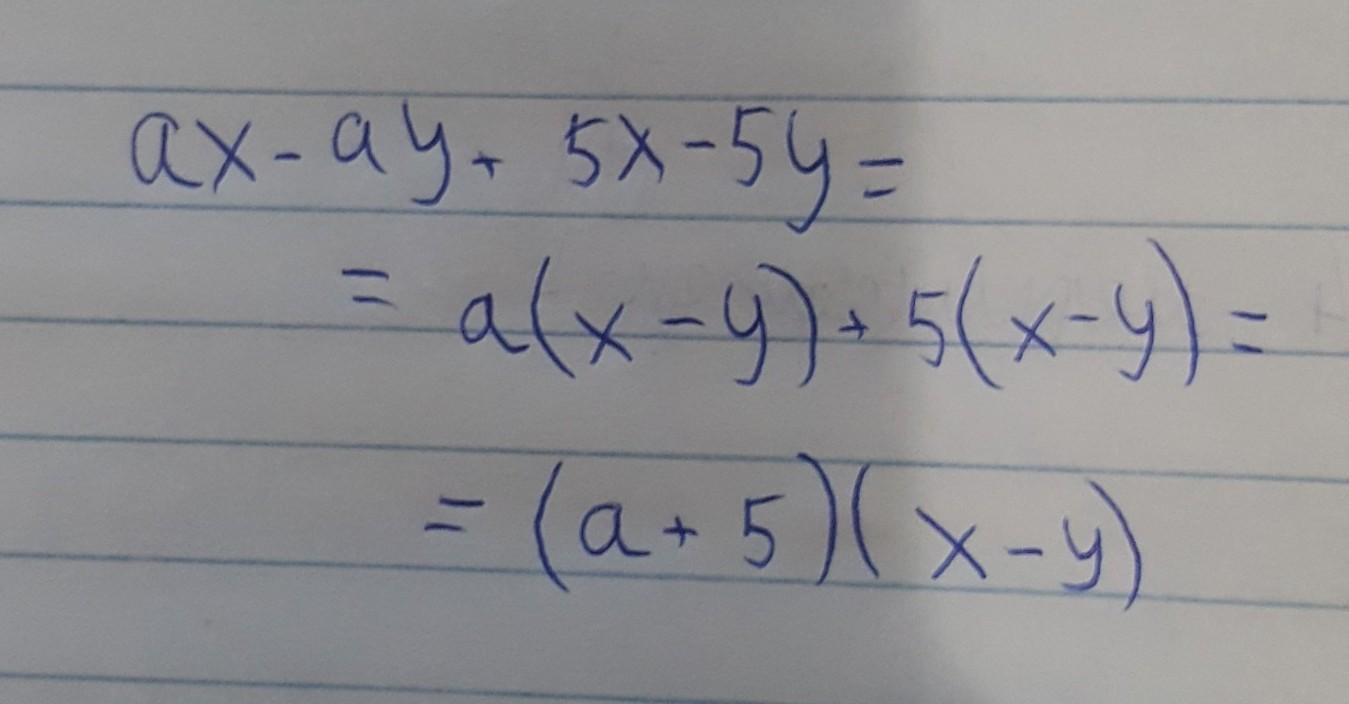 ax - ay + 5x - 5y =
= a(x - y) + 5(x - y) =
= (a + 5)(x - y)